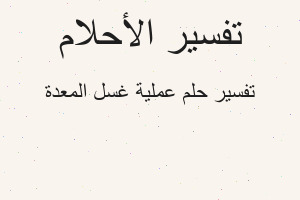 تفسير الأحلام
تفسير حلم عملية غسل المعدة